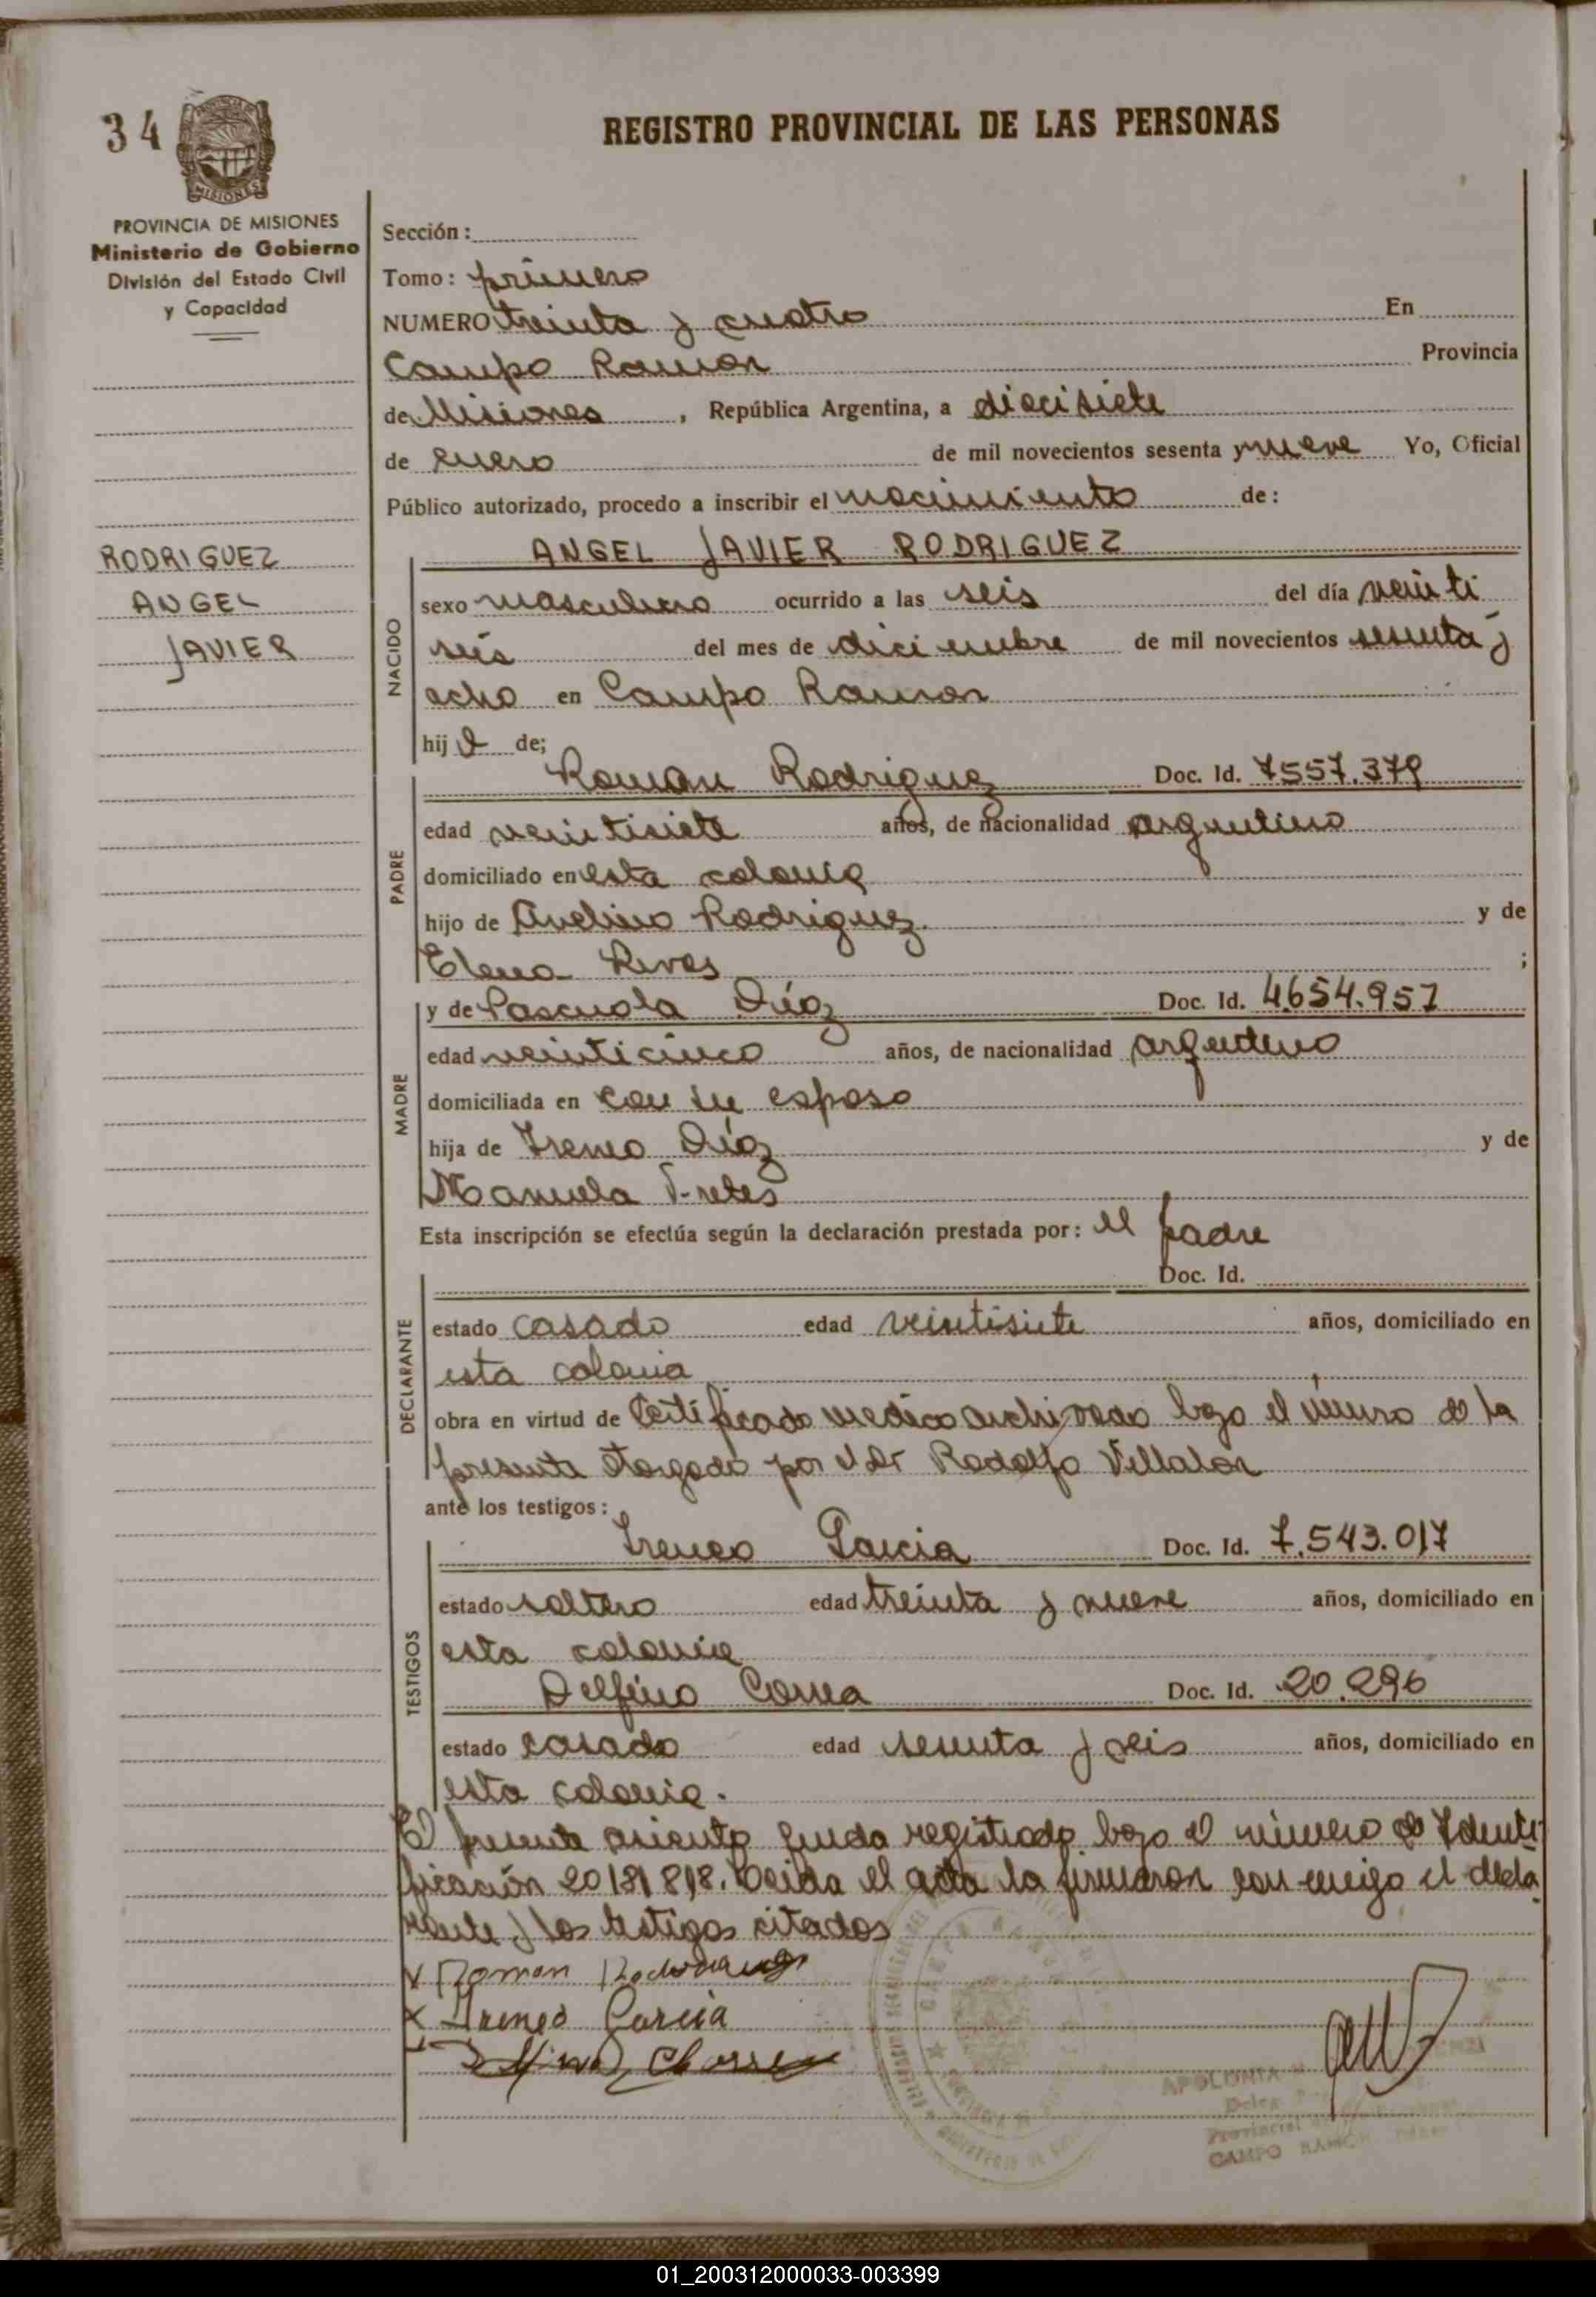 34
REGISTRO PROVINCIAL DE LAS PERSONAS
MISIONES
PROVINCIA DE MISIONES
Ministerio de Gobierno
División del Estado Civil
y Capacidad
RODRIGUEZ
ANGEL
JAVIER
Sección:
Tomo: primero
NUMERO treinta y cuatro En
Campo Ramon Provincia
de Misiones, República Argentina, a diecisiete
de enero de mil novecientos sesenta y nueve Yo, Oficial
Público autorizado, procedo a inscribir el nacimiento de:
ANGEL JAVIER RODRIGUEZ
NACIDO
sexo masculino ocurrido a las seis del día veinti
seis del mes de diciembre de mil novecientos sesenta y
ocho en Campo Ramon
hijo de;
PADRE
Roman Rodriguez Doc. Id. 7557.379
edad veintisiete años, de nacionalidad argentino
domiciliado en esta colonia
hijo de Avelino Rodriguez. y de
Elena Rivas ;
MADRE
y de Pascuala Díaz Doc. Id. 4.654.957
edad veinticinco años, de nacionalidad argentino
domiciliada en con su esposo
hija de Ireneo Díaz y de
Manuela
Esta inscripción se efectúa según la declaración prestada por: el padre
Doc. Id.
DECLARANTE
estado casado edad veintisiete años, domiciliado en
esta colonia
obra en virtud de Certificado medico archivado bajo el número de la
presente otorgado por el Dr Rodolfo Villalon
ante los testigos:
TESTIGOS
Ireneo Garcia Doc. Id. 7.543.017
estado soltero edad treinta y nueve años, domiciliado en
esta colonia
Delfino Correa Doc. Id. 20.296
estado casado edad sesenta y seis años, domiciliado en
esta colonia.
El presente asiento queda registrado bajo el número de Identi
ficación 20.181.818. Leida el acta la firmaron con migo el decla
rante y los testigos citados
x Roman Rodriguez
x Ireneo Garcia
APOLONIA
Provincial
CAMPO RAMON
01_200312000033-003399